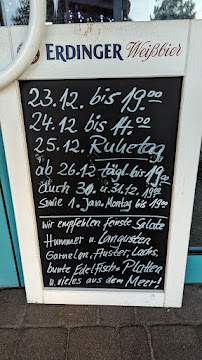 ERDINGER Weißbier
23.12. bis 19.00
24.12 bis 14.00
25.12. Ruhetag
ab 26.12 tägl bis 19.00
auch 30. u. 31.12. 19.00
sowie 1. Jan. Montag bis 19.00
wir empfehlen feinste Salate
Hummer u. Langusten
Garnelen, Austern, Lachs,
bunte Edelfisch-Platten
u. vieles aus dem Meer!